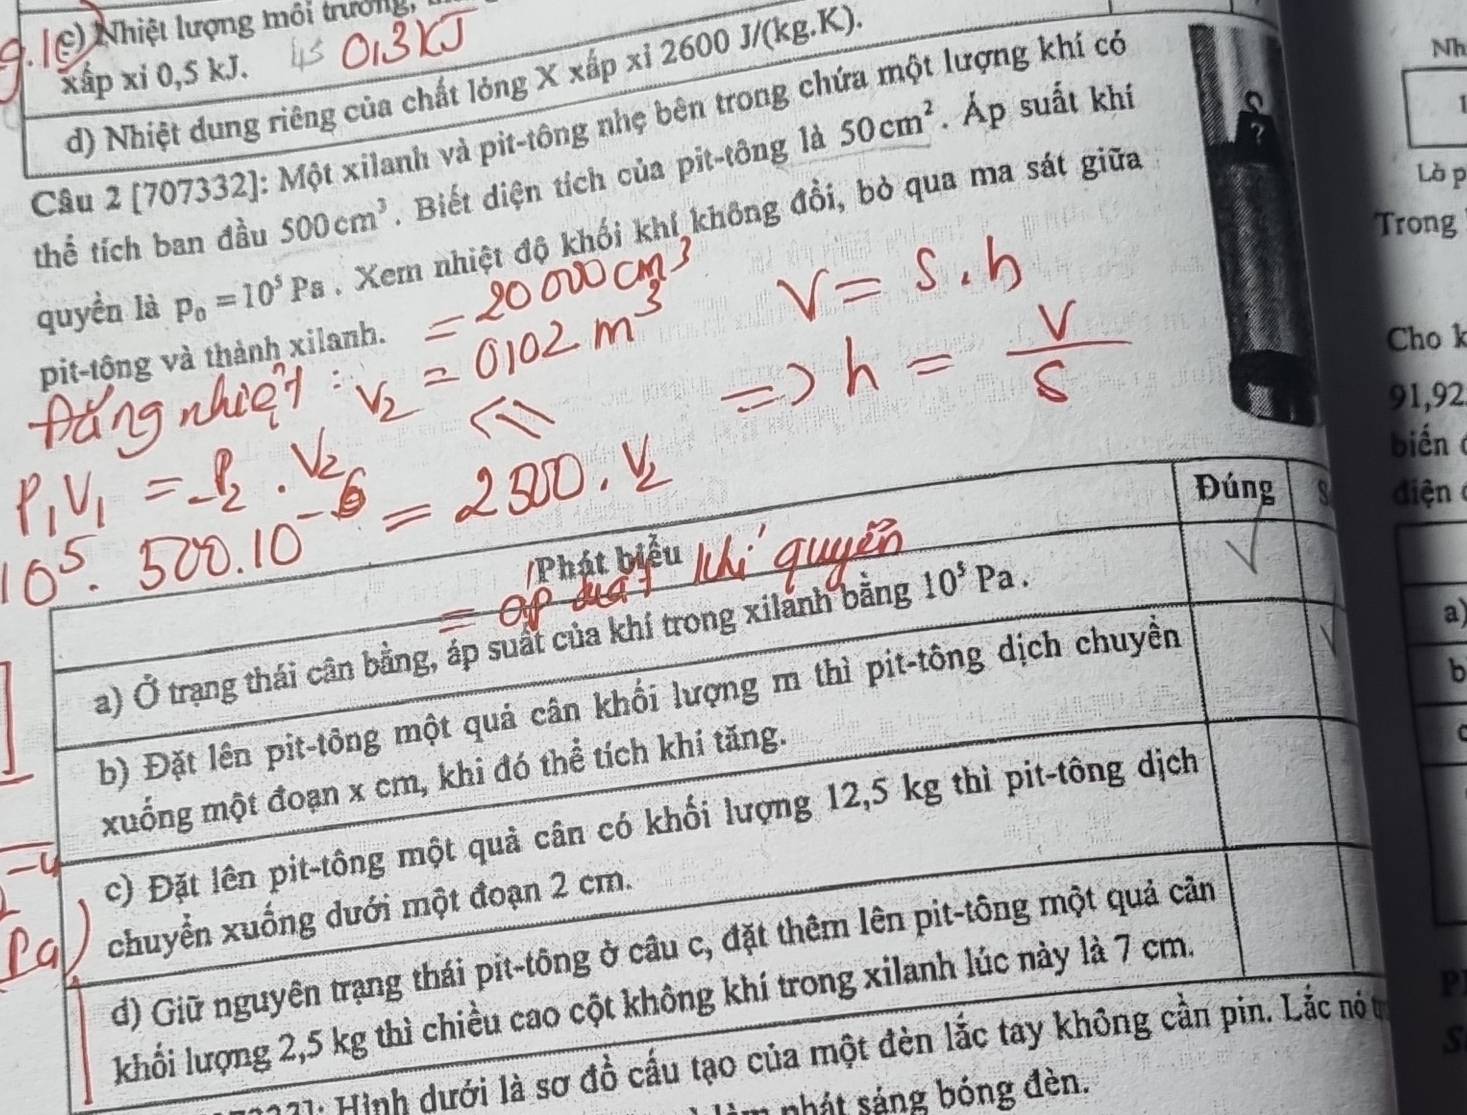 c) Nhiệt lượng môi trường,
xấp xỉ 0,5 kJ.
0,3 KJ
d) Nhiệt dung riêng của chất lỏng X xấp xỉ 2600 J/(kg.K).
Câu 2 [707332]: Một xilanh và pit-tông nhẹ bên trong chứa một lượng khí có
thể tích ban đầu 500cm³. Biết diện tích của pit-tông là 50cm². Áp suất khí
quyển là p₀ = 10⁵ Pa. Xem nhiệt độ khối khí không đổi, bỏ qua ma sát giữa
pit-tông và thành xilanh.
= 20 000 cm³
V = S.h
Đẳng nhiệt : V₂ = 0,02 m³
=> h = V/S
P₁V₁ = P₂ . V₂
10⁵. 500.10⁻⁶ = 2500. V₂
Phát biểu
Đúng
S
= áp suất khí quyển
a) Ở trạng thái cân bằng, áp suất của khí trong xilanh bằng 10⁵ Pa.
b) Đặt lên pit-tông một quả cân khối lượng m thì pit-tông dịch chuyển
xuống một đoạn x cm, khi đó thể tích khí tăng.
c) Đặt lên pit-tông một quả cân có khối lượng 12,5 kg thì pit-tông dịch
chuyển xuống dưới một đoạn 2 cm.
Pa)
d) Giữ nguyên trạng thái pit-tông ở câu c, đặt thêm lên pit-tông một quả cân
khối lượng 2,5 kg thì chiều cao cột không khí trong xilanh lúc này là 7 cm.
Hình dưới là sơ đồ cấu tạo của một đèn lắc tay không cần pin. Lắc nó
phát sáng bóng đèn.
Nh
1
Là p
Trong
Cho k
91,92
biến
điện
a)
b
c